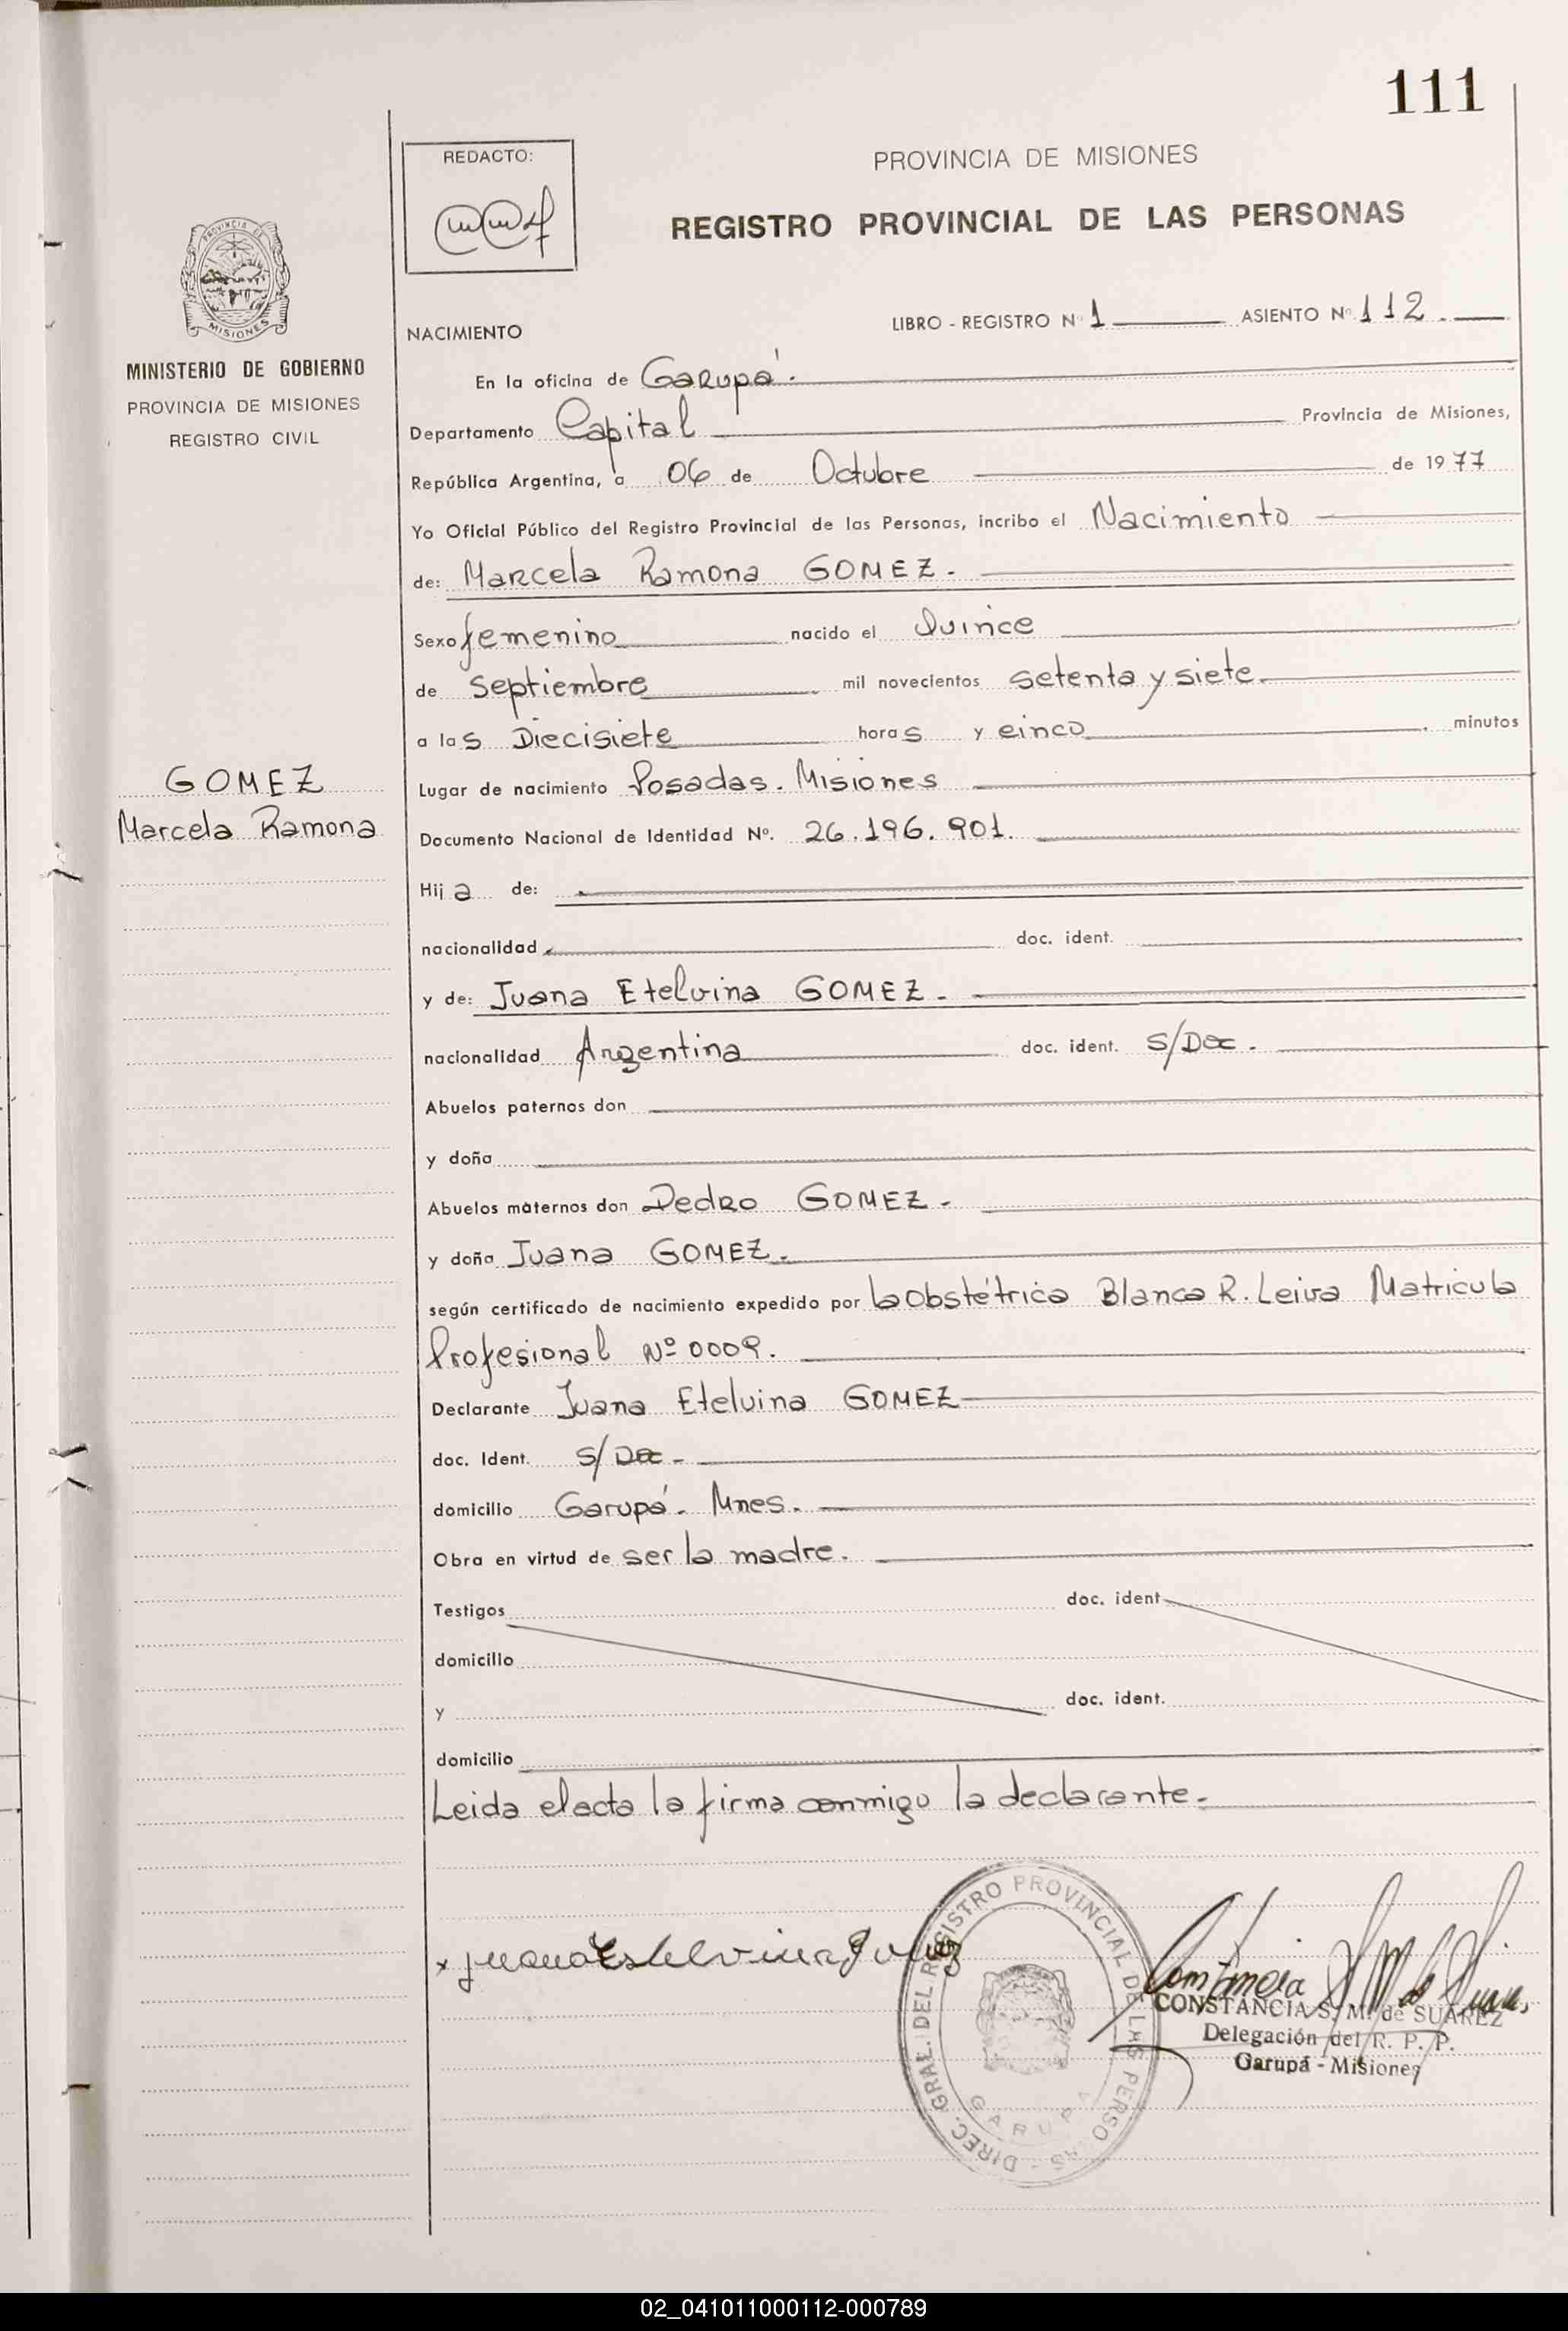 111
REDACTO:
PROVINCIA DE MISIONES
REGISTRO PROVINCIAL DE LAS PERSONAS
PROVINCIA DE
MISIONES
MINISTERIO DE GOBIERNO
PROVINCIA DE MISIONES
REGISTRO CIVIL
LIBRO - REGISTRO Nº 1 ASIENTO Nº 112.
NACIMIENTO
En la oficina de Garupá.
Departamento Capital Provincia de Misiones,
República Argentina, a 06 de Octubre de 1977
Yo Oficial Público del Registro Provincial de las Personas, incribo el Nacimiento
de: Marcela Ramona GOMEZ.
Sexo femenino nacido el Quince
de septiembre mil novecientos setenta y siete.
a las Diecisiete horas y cinco minutos
GOMEZ
Marcela Ramona
Lugar de nacimiento Posadas. Misiones
Documento Nacional de Identidad Nº. 26.196.901.
Hija de:
nacionalidad doc. ident.
y de: Juana Etelvina GOMEZ.
nacionalidad Argentina doc. ident. S/Doc.
Abuelos paternos don
y doña
Abuelos maternos don Pedro GOMEZ.
y doña Juana GOMEZ.
según certificado de nacimiento expedido por la Obstétrica Blanca R. Leiva Matricula
Profesional Nº 0009.
Declarante Juana Etelvina GOMEZ
doc. Ident. S/Doc.
domicilio Garupá. Mnes.
Obra en virtud de ser la madre.
Testigos doc. ident
domicilio
y doc. ident.
domicilio
Leida el acta la firma conmigo la declarante.
DIREC. GRAL. DEL REGISTRO PROVINCIAL DE LAS PERSO AS
GARUPA
CONSTANCIA S. M. de SUAREZ
Delegación del R. P. P.
Garupá - Misiones
02_041011000112-000789